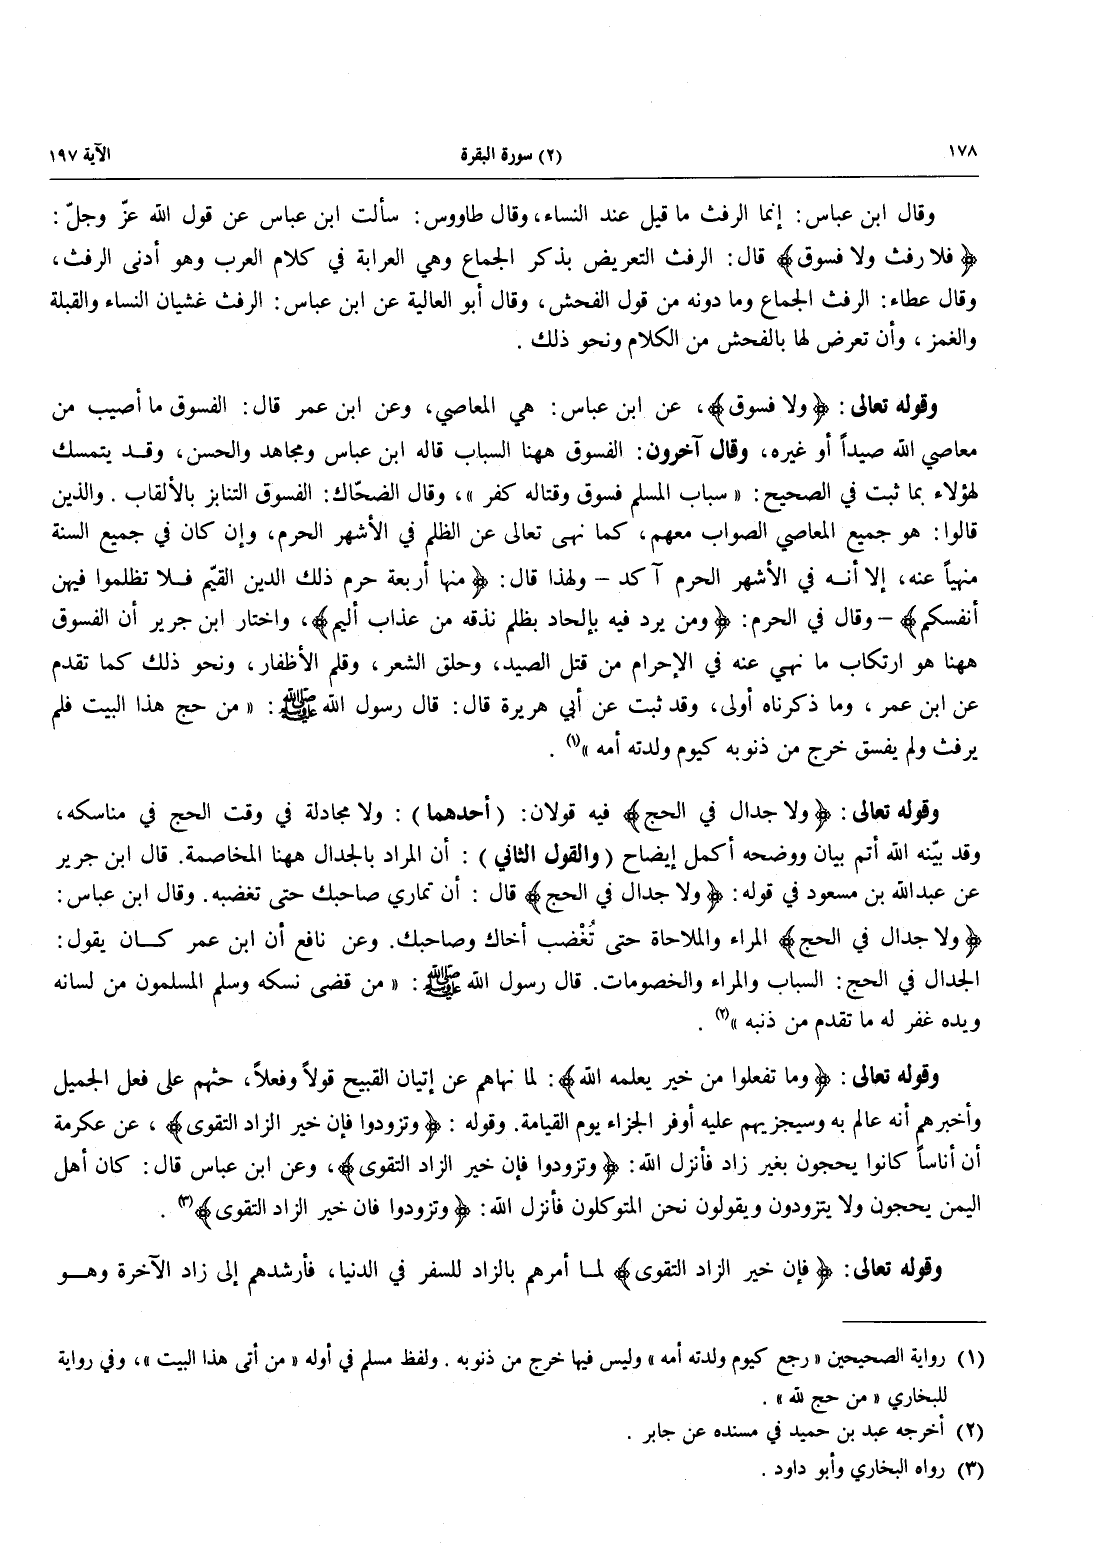 ١٧٨ (٢) سورة البقرة الآية ١٩٧
وقال ابن عباس: إنما الرفث ما قيل عند النساء، وقال طاووس: سألت ابن عباس عن قول الله عزّ وجلّ:
﴿فلا رفث ولا فسوق﴾ قال: الرفث التعريض بذكر الجماع وهي العرابة في كلام العرب وهو أدنى الرفث،
وقال عطاء: الرفث الجماع وما دونه من قول الفحش، وقال أبو العالية عن ابن عباس: الرفث غشيان النساء والقبلة
والغمز، وأن تعرض لها بالفحش من الكلام ونحو ذلك.
وقوله تعالى: ﴿ولا فسوق﴾، عن ابن عباس: هي المعاصي، وعن ابن عمر قال: الفسوق ما أصيب من
معاصي الله صيداً أو غيره، وقال آخرون: الفسوق ههنا السباب قاله ابن عباس ومجاهد والحسن، وقد يتمسك
لهؤلاء بما ثبت في الصحيح: «سباب المسلم فسوق وقتاله كفر»، وقال الضحّاك: الفسوق التنابز بالألقاب. والذين
قالوا: هو جميع المعاصي الصواب معهم، كما نهى تعالى عن الظلم في الأشهر الحرم، وإن كان في جميع السنة
منهياً عنه، إلا أنه في الأشهر الحرم آكد – ولهذا قال: ﴿منها أربعة حرم ذلك الدين القيّم فلا تظلموا فيهن
أنفسكم﴾ – وقال في الحرم: ﴿ومن يرد فيه بإلحاد بظلم نذقه من عذاب أليم﴾، واختار ابن جرير أن الفسوق
ههنا هو ارتكاب ما نهي عنه في الإحرام من قتل الصيد، وحلق الشعر، وقلم الأظفار، ونحو ذلك كما تقدم
عن ابن عمر، وما ذكرناه أولى، وقد ثبت عن أبي هريرة قال: قال رسول الله ﷺ: «من حج هذا البيت فلم
يرفث ولم يفسق خرج من ذنوبه كيوم ولدته أمه»(١).
وقوله تعالى: ﴿ولا جدال في الحج﴾ فيه قولان: (أحدهما): ولا مجادلة في وقت الحج في مناسكه،
وقد بيّنه الله أتم بيان ووضحه أكمل إيضاح (والقول الثاني): أن المراد بالجدال ههنا المخاصمة. قال ابن جرير
عن عبدالله بن مسعود في قوله: ﴿ولا جدال في الحج﴾ قال: أن تماري صاحبك حتى تغضبه. وقال ابن عباس:
﴿ولا جدال في الحج﴾ المراء والملاحاة حتى تُغْضب أخاك وصاحبك. وعن نافع أن ابن عمر كان يقول:
الجدال في الحج: السباب والمراء والخصومات. قال رسول الله ﷺ: «من قضى نسكه وسلم المسلمون من لسانه
ويده غفر له ما تقدم من ذنبه»(٢).
وقوله تعالى: ﴿وما تفعلوا من خير يعلمه الله﴾: لما نهاهم عن إتيان القبيح قولاً وفعلاً، حثهم على فعل الجميل
وأخبرهم أنه عالم به وسيجزيهم عليه أوفر الجزاء يوم القيامة. وقوله: ﴿وتزودوا فإن خير الزاد التقوى﴾، عن عكرمة
أن أناساً كانوا يحجون بغير زاد فأنزل الله: ﴿وتزودوا فإن خير الزاد التقوى﴾، وعن ابن عباس قال: كان أهل
اليمن يحجون ولا يتزودون ويقولون نحن المتوكلون فأنزل الله: ﴿وتزودوا فان خير الزاد التقوى﴾(٣).
وقوله تعالى: ﴿فإن خير الزاد التقوى﴾ لما أمرهم بالزاد للسفر في الدنيا، فأرشدهم إلى زاد الآخرة وهو
(١) رواية الصحيحين «رجع كيوم ولدته أمه» وليس فيها خرج من ذنوبه. ولفظ مسلم في أوله «من أتى هذا البيت»، وفي رواية
للبخاري «من حج لله».
(٢) أخرجه عبد بن حميد في مسنده عن جابر.
(٣) رواه البخاري وأبو داود.